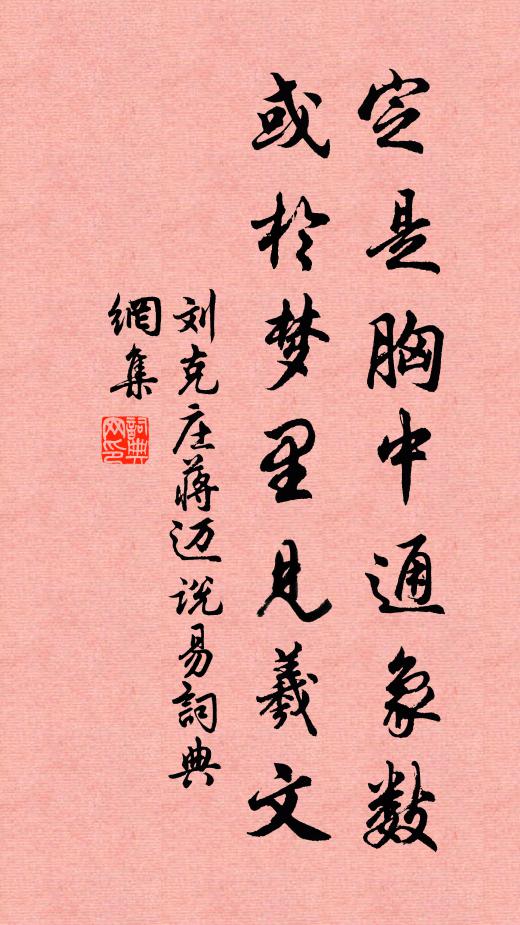 定是胸中通象数
或於梦里见羲文
刘克庄蒋迈说易詞典
網集
詞典网印